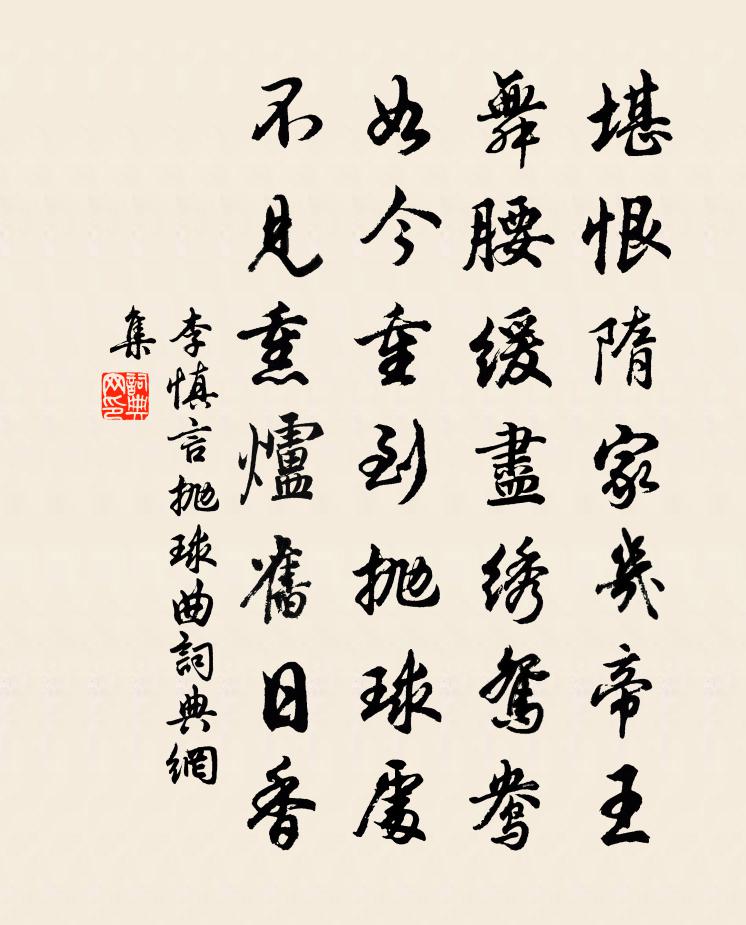 堪恨隋家幾帝王
舞腰緩盡綉鴛鴦
如今重到抛球處
不見熏爐舊日香
李慎言抛球曲詞典網
集
詞典
网印